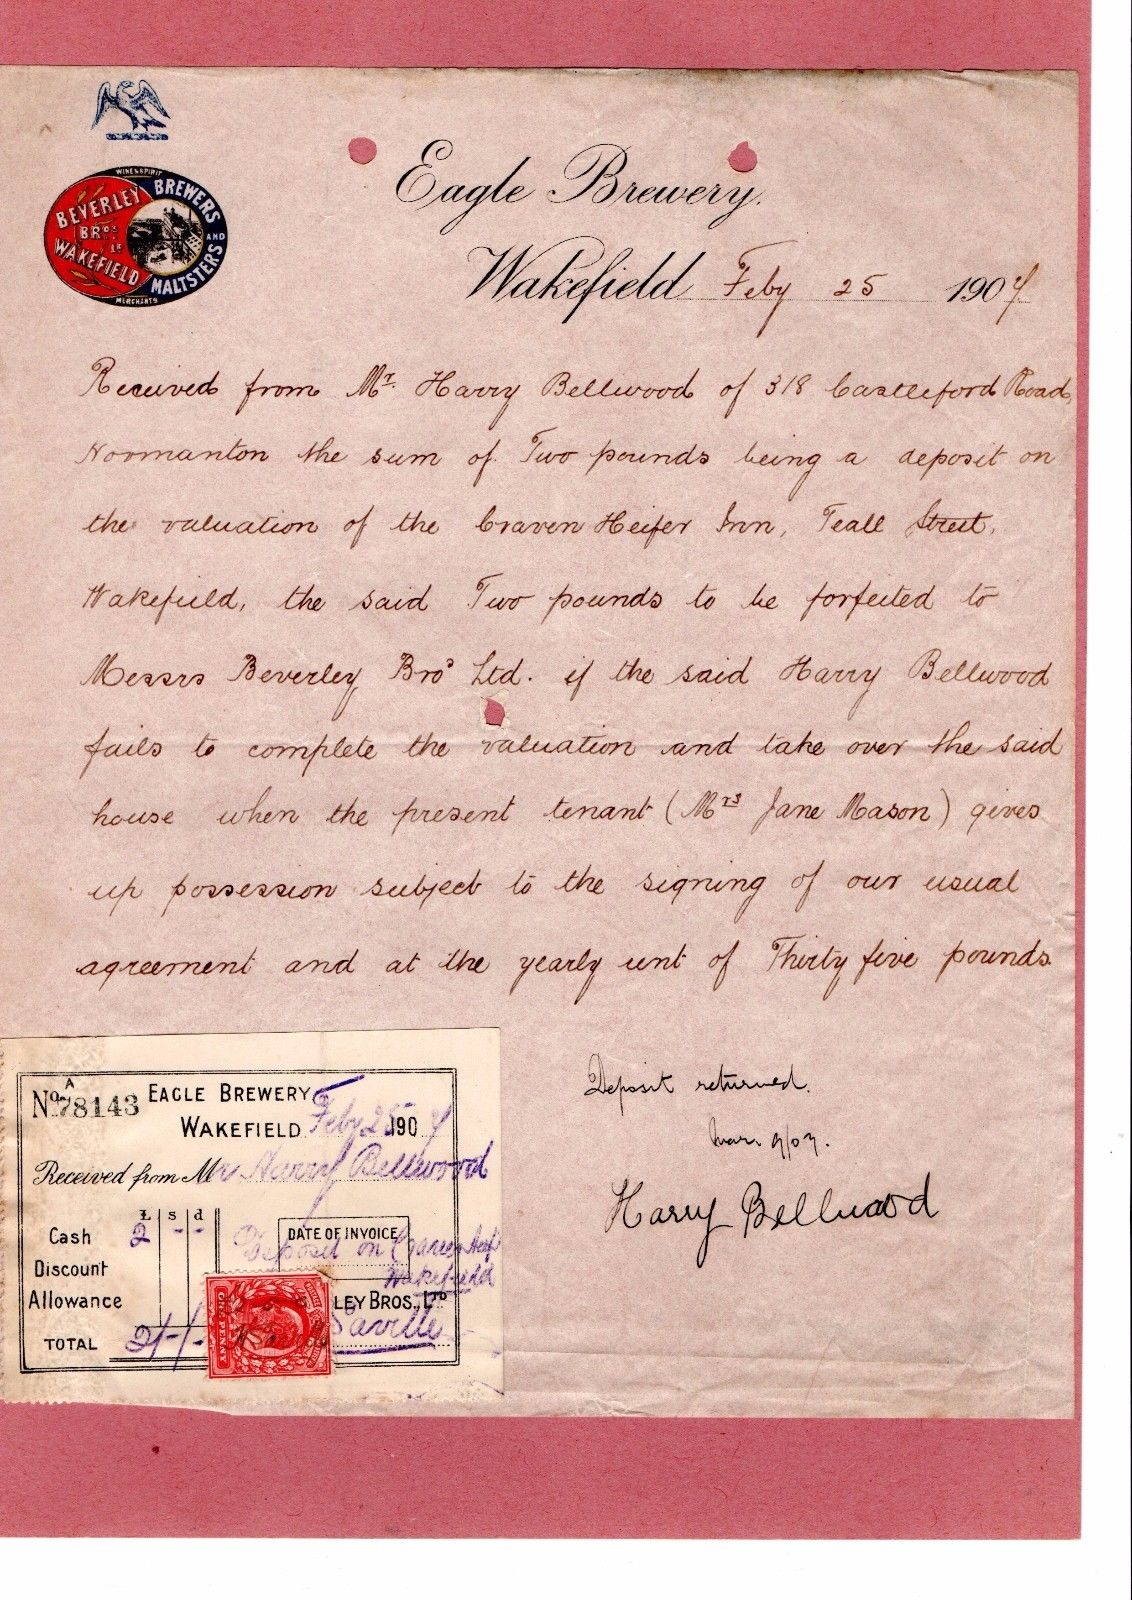 WINE & SPIRIT
BEVERLEY BROS LD WAKEFIELD
BREWERS AND MALTSTERS
MERCHANTS
Eagle Brewery.
Wakefield Feby 25 1907
Received from Mr. Harry Bellwood of 318 Castleford Road,
Normanton the sum of Two pounds being a deposit on
the valuation of the Craven Heifer Inn, Teall Street,
Wakefield, the said Two pounds to be forfeited to
Messrs Beverley Bros Ltd. if the said Harry Bellwood
fails to complete the valuation and take over the said
house when the present tenant (Mrs Jane Mason) gives
up possession subject to the signing of our usual
agreement and at the yearly rent of Thirty five pounds.
Deposit returned.
Mar 9/07.
Harry Bellwood
No. A 78143 EAGLE BREWERY
WAKEFIELD Feby 25 1907
Received from Mr Harry Bellwood
£ s d
Cash 2 - -
DATE OF INVOICE
Deposit on Craven Heif
Discount
Wakefield
Allowance
LEY BROS., LTD
TOTAL 2/-/-
Saville
ONE PENNY